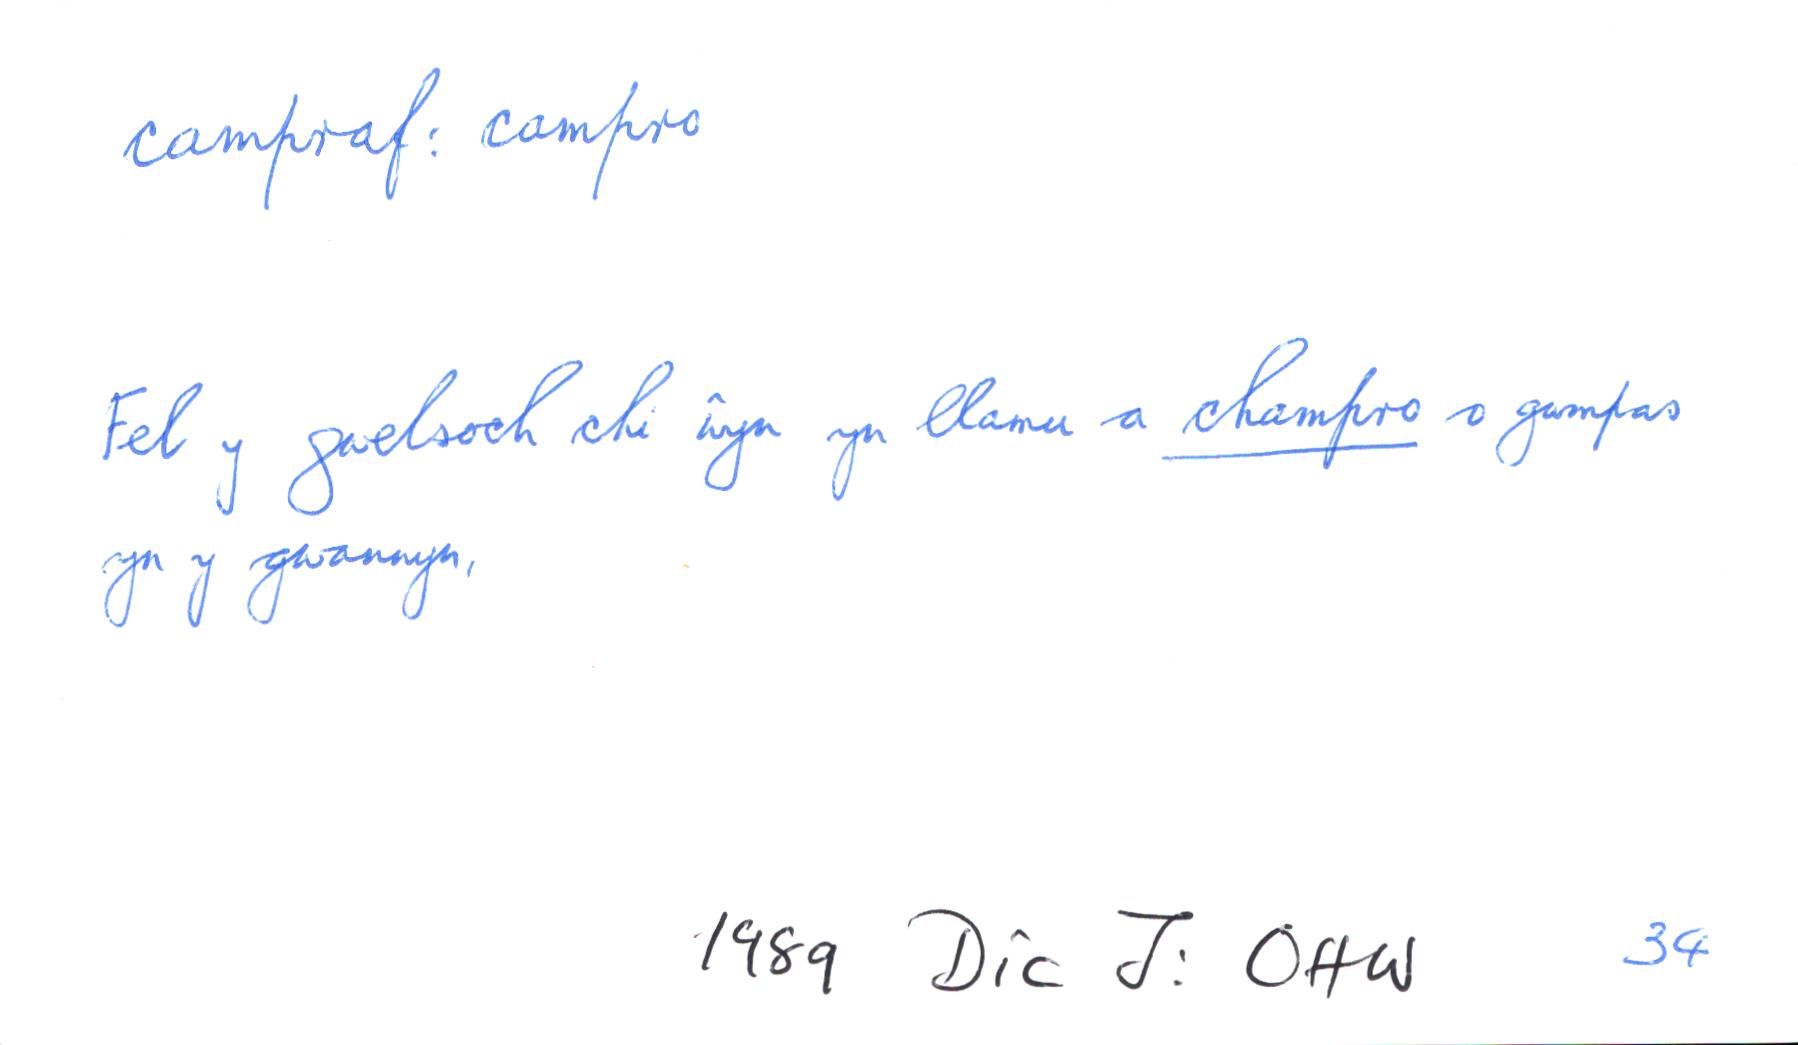 campraf: campro
Fel y gwelsoch chi ŵyn yn llamu a champro o gwmpas
yn y gwannwyn,
1989 Dic J: OHW 34